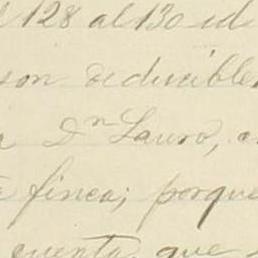 128 al 130 id
son deducibles
a Dn Lauro,
finca; porque
cuenta que